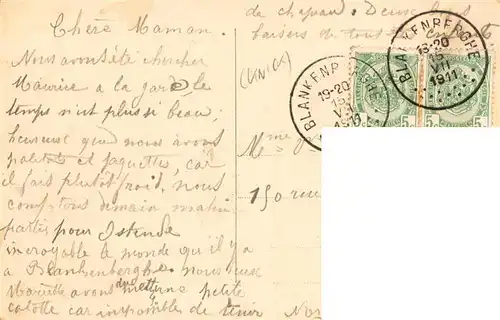 Chère Maman.
Nous avons été chercher
Maurice a la gare, le
temps n'est plus si beau;
heureuse que nous avons
paletots et jaquettes, car
il fait plutôt froid, nous
comptons demain matin
partir pour Ostende
incroyable le monde qu'il y a
a Blankenberghe. nous
Mariette avons dû mettre une petite
calotte car impossible de tenir
de chapeau. Deux bons
baisers de tout
(UNICA)
BLANKENBERGHE
19-20
15
1911
BLANKENBERGHE
19-20
15
VII
1911
5
5
Mme
150 rue